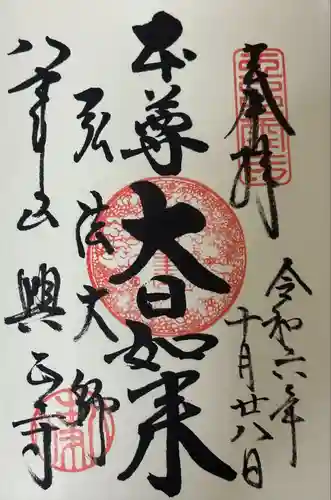 奉拝
令和六年
十月廿八日
本尊
大日如来
弘法大師
八事山
興正寺